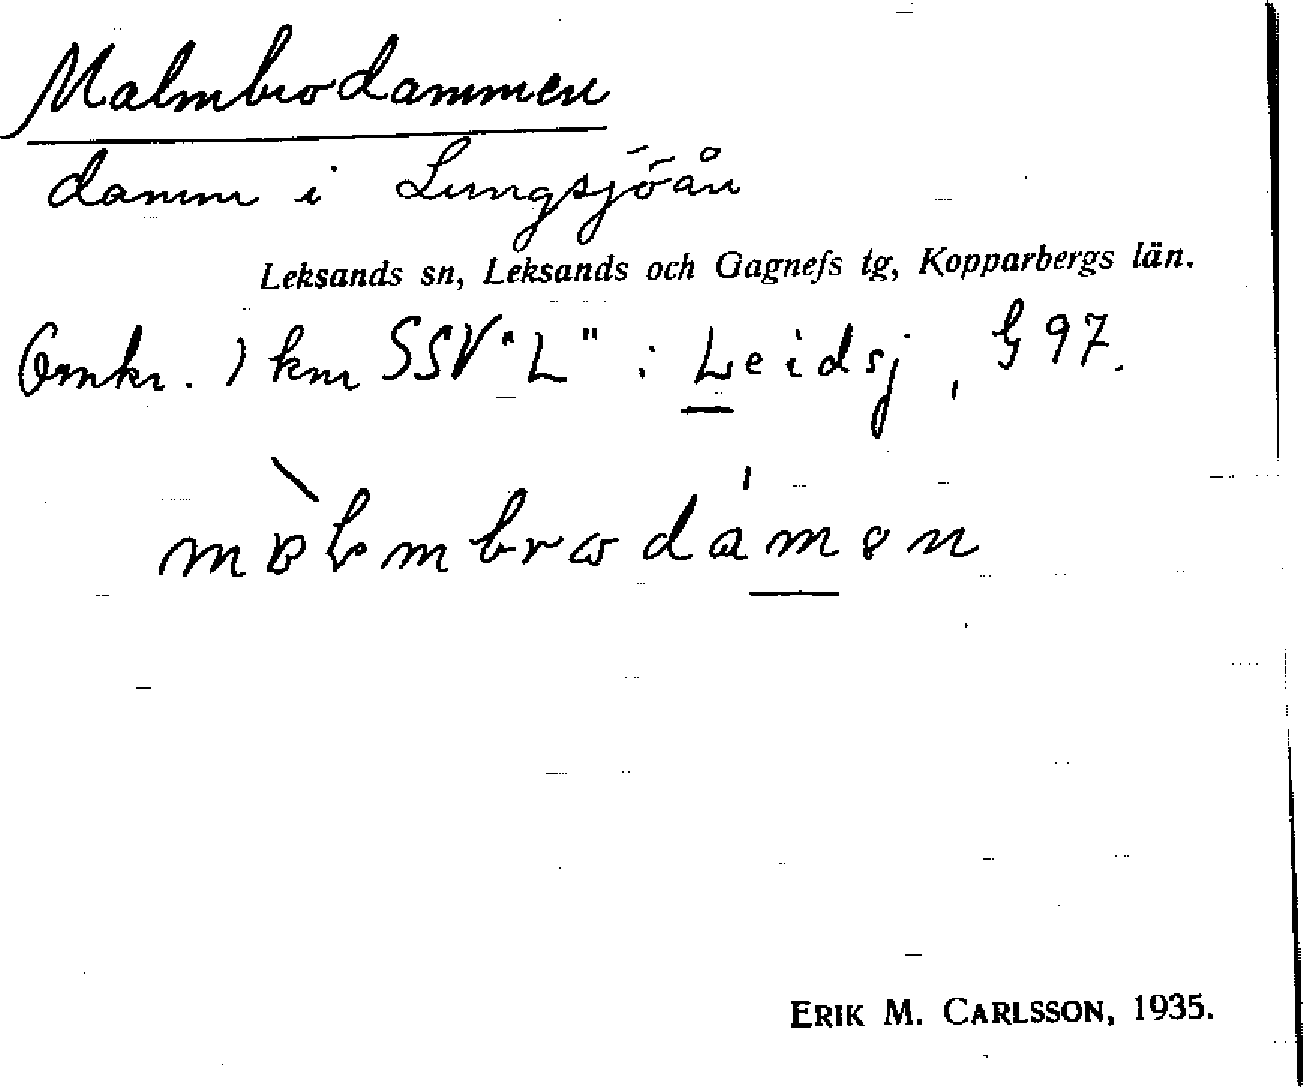 Malmbrodammen
damm i Lungsjöån
Leksands sn, Leksands och Gagnefs tg, Kopparbergs län.
Omkr. 1 km SSV "L" i Leidsj, G 97.
ERIK M. CARLSSON, 1935.